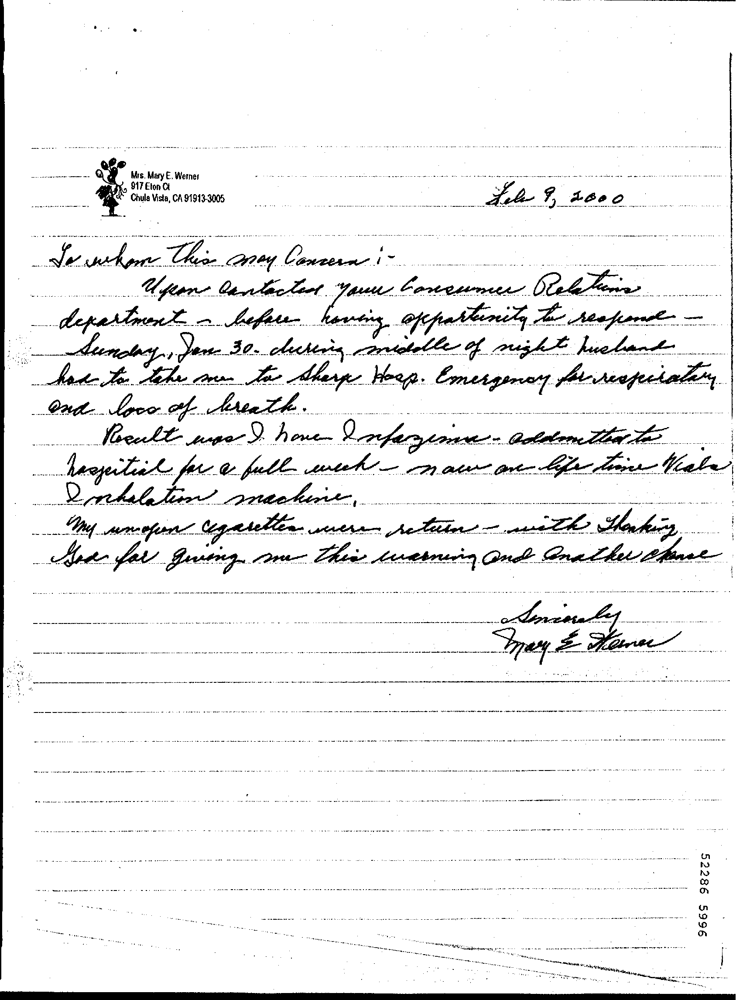 Mrs. Mary E. Werner
917 Elon Ct
Chula Vista, CA 91913-3005
Feb 9, 2000
To whom This may Concern :-
Upon Contacted your Consumer Relations
department - before having opportunity to respond -
Sunday, Jan 30. during middle of night husband
had to take me to Sharp Hosp. Emergency for respiratory
and loss of breath.
Result was I have Infazima - addmitted to
haspitial for a full week - now on life time Vials
Inhalation machine.
My unopen cgarettes were return - with Thanking
God for giving me this warning and another chance
Sincerely
Mary E Werner
52286 5996